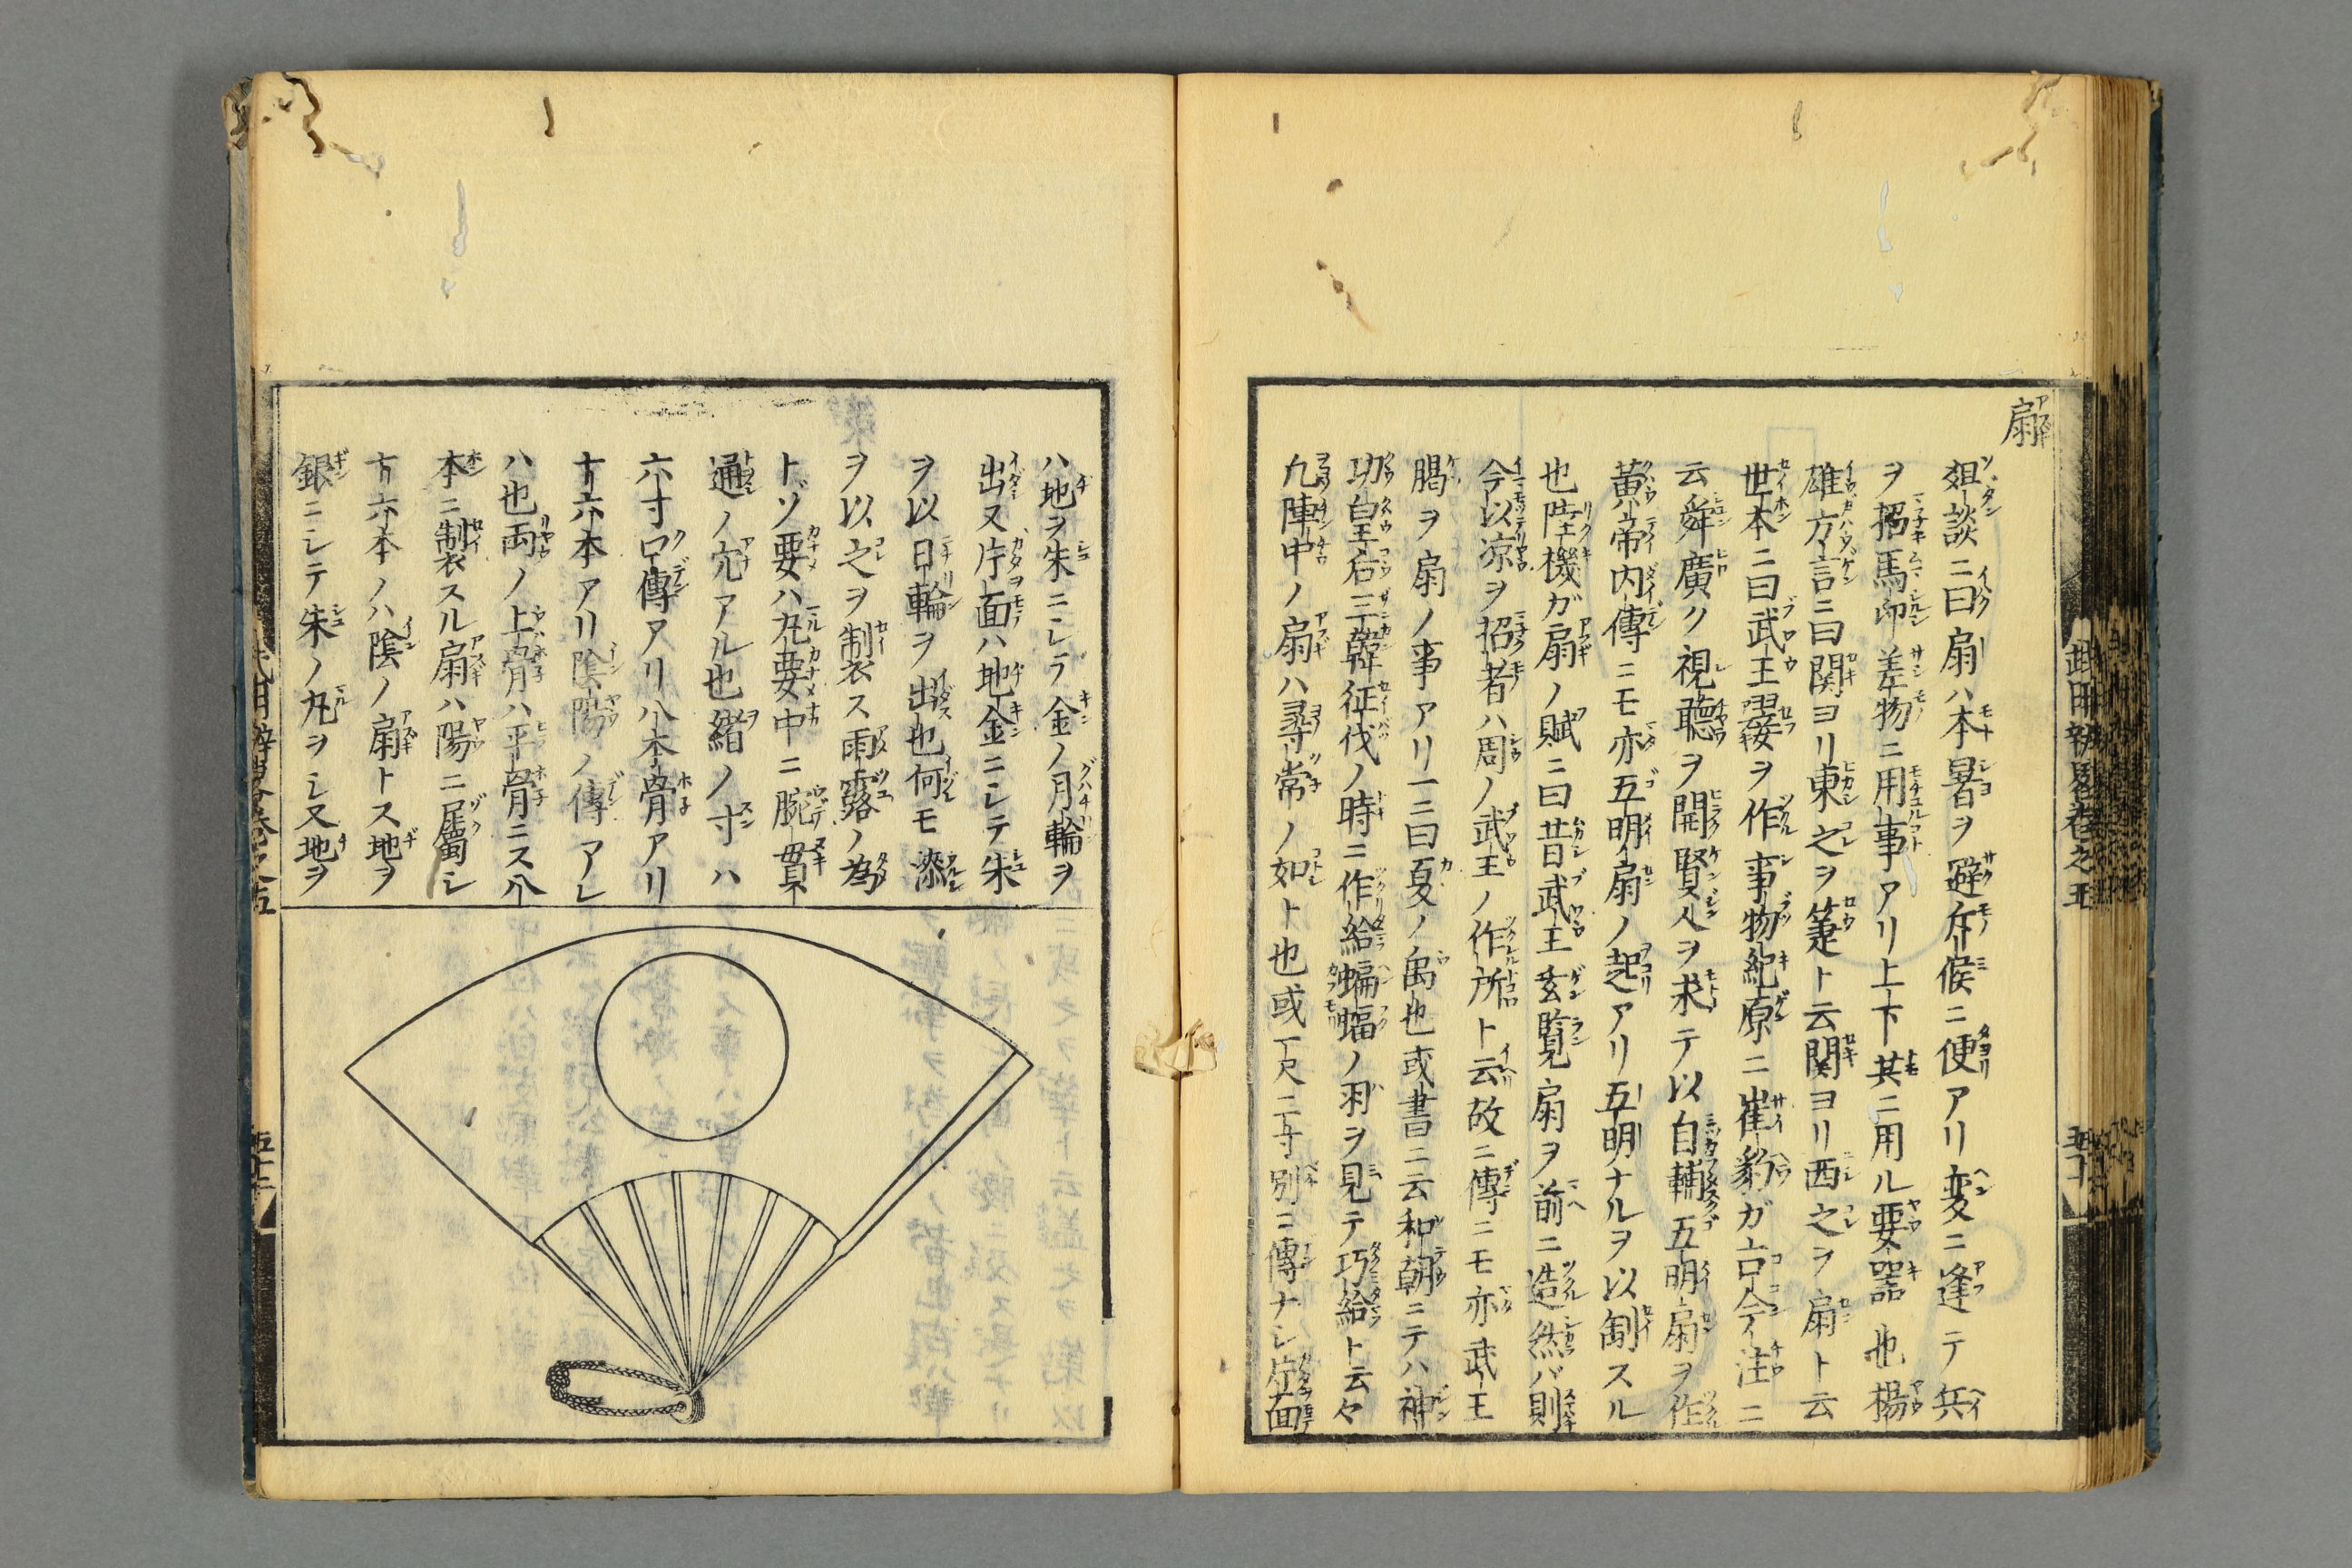 扇
爼談ニ曰扇ハ本暑ヲ避斥候ニ便アリ変ニ逢テ兵
ヲ招馬印差物ニ用事アリ上下共ニ用ル要器也楊
雄方言ニ曰関ヨリ東之ヲ箑ト云関ヨリ西之ヲ扇ト云
世本ニ曰武王翣ヲ作事物紀原ニ崔豹ガ古今注ニ
云舜廣ク視聴ヲ開賢人ヲ求テ以自輔五明扇ヲ作
黄帝内傳ニモ亦五明扇ノ起アリ五明ナルヲ以制スル
也陸機ガ扇ノ賦ニ曰昔武王玄覧扇ヲ前ニ造然バ則
今以凉ヲ招者ハ周ノ武王ノ作所ト云故ニ傳ニモ亦武王
暍ヲ扇ノ事アリ一ニ曰夏ノ禹也或書ニ云和朝ニテハ神
功皇后三韓征伐ノ時ニ作給蝙蝠ノ羽ヲ見テ巧給ト云々
凢陣中ノ扇ハ尋常ノ如ト也或一尺二寸別ニ傳ナシ片面
武田兵畧巻之五
ハ地ヲ朱ニシテ金ノ月輪ヲ
出又片面ハ地金ニシテ朱
ヲ以日輪ヲ出也何モ漆
ヲ以之ヲ制衣ス雨露ノ為
トゾ要ハ丸要中ニ腕貫
通ノ穴アル也緒ノ寸ハ
六寸口傳アリ八本骨アリ
十六本アリ陰陽ノ傳アレ
ハ也両ノ上骨ハ平骨ニス八
本ニ制衣スル扇ハ陽ニ屬シ
十六本ノハ陰ノ扇トス地ヲ
銀ニシテ朱ノ丸ヲシ又地ヲ